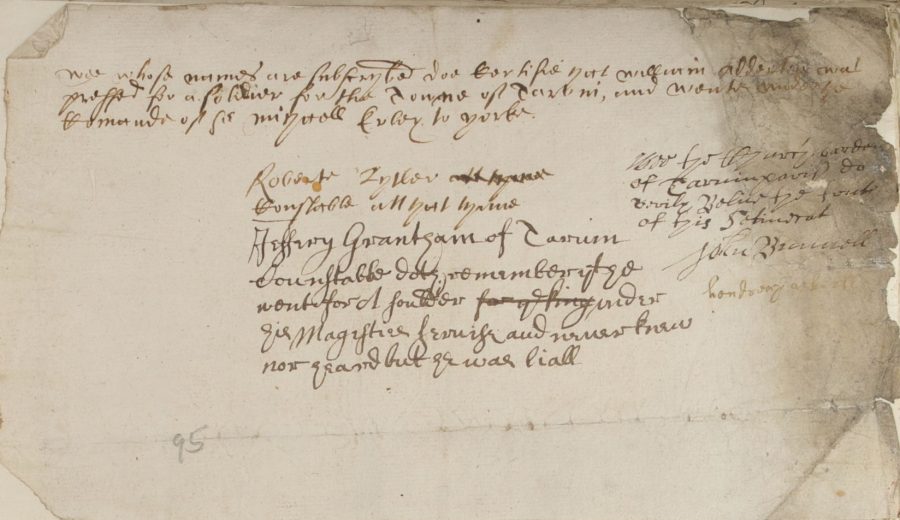 wee whose names are subscrybed doe Certifie yat william Adderton was
pressed for a soldier for the Towne of Tarvin, and wente under the
Comande of Sr mighell Erley to yorke.
Roberte Tyller att tyme
Constable att yat tyme
Jeffrey Grantham of Tarvin
Counstable doth remember yt he
went forth souldier for ye king under
his Magisties servise and never knew
nor heard but he was liall
wee the Church wardens
of Tarvin parish do
verily Belive the
of this Setificat
John Brunell
95